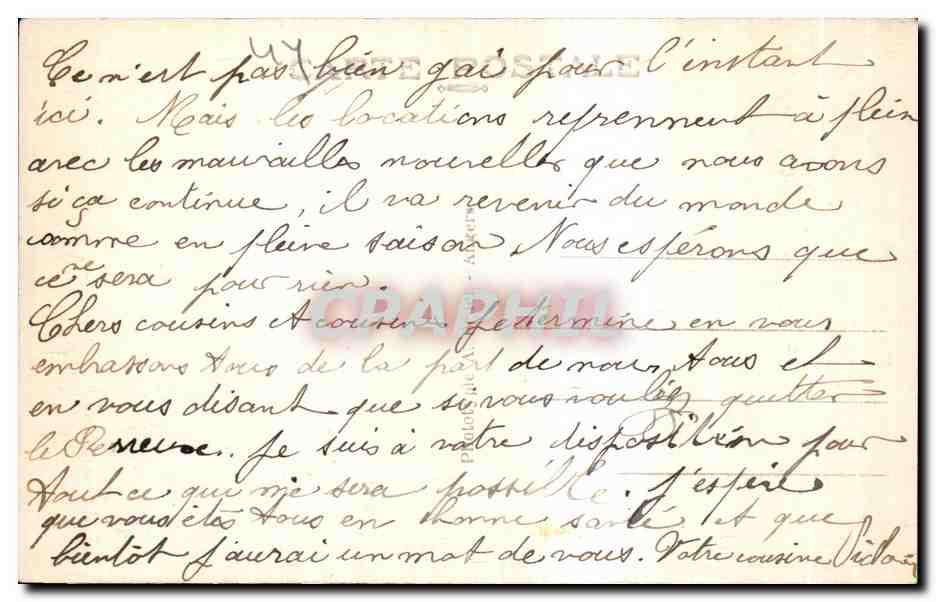 44
CARTE POSTALE
Ce n'est pas bien gai pour l'instant
ici. Mais les locations reprennent à plein
avec les mauvailles nouvelles que nous avons
si ça continue, il va revenir du monde
comme en pleine saison Nous espérons que
ce ne sera pour rien.
Chers cousins et cousines je termine en vous
embrassons tous de la part de nous tous et
en vous disant que si vous vouliez quitter
le Perreux. Je suis à votre disposition pour
tout ce qui m'e sera possible. J'espère
que vous êtes tous en bonne santé et que
bientôt j'aurai un mot de vous. Votre cousine
Phototypie Angers
CRAPHIL